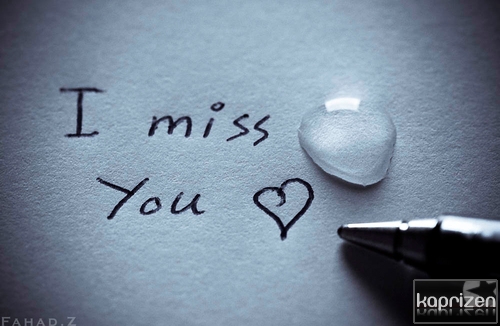 I miss
You
kaprizen
FAHAD.Z